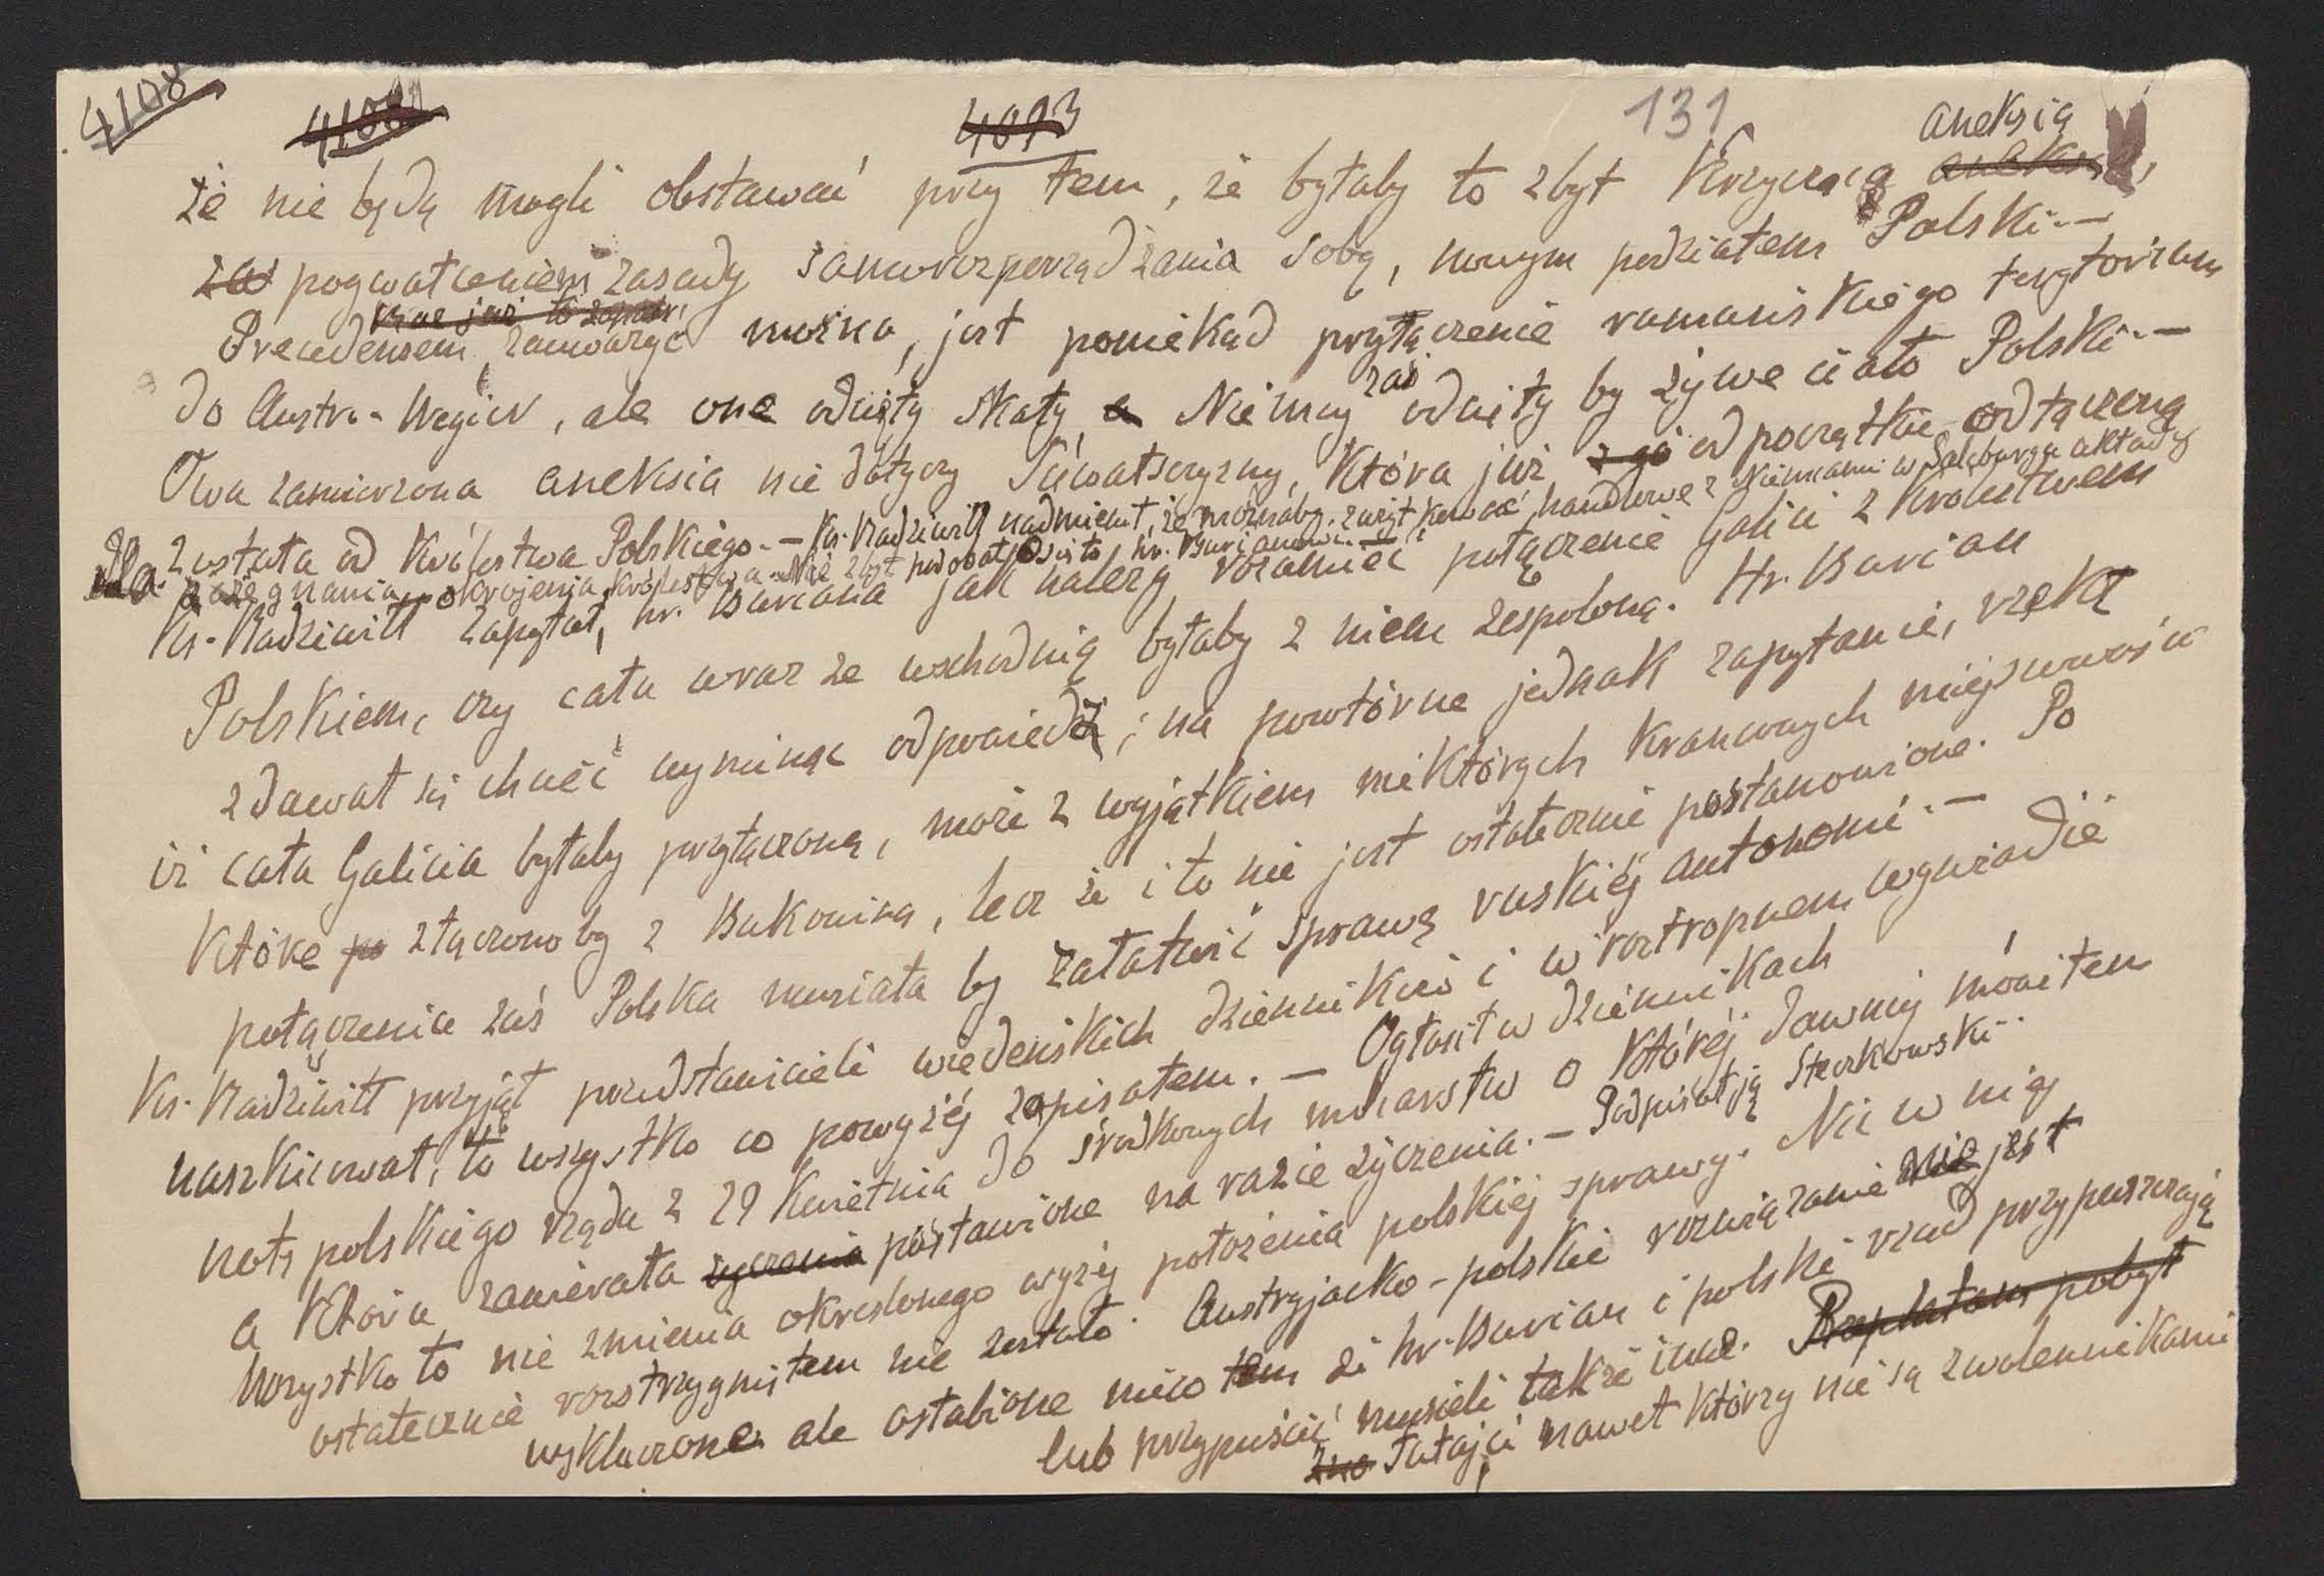 4108
4108 4093 131
aneksią
że nie będą mogli obstawać przy tem, że byłaby to zbyt krzyczącą aneksią,
za pogwałceniem zasady samorozporządzania sobą, nowym podziałem Polski.—
Precedensem, zauważyć można, jest poniekąd przyłączenie rumuńskiego terytorium
do Austro-Węgier, ale one odcięły skały a Niemcy zaś odcięły by żywe ciało Polski.—
Owa zamierzona aneksia nie dotyczy Suwalszczyzny, która już od początku odłączoną
została od Królestwa Polskiego.— Ks. Radziwiłł nadmienił, że możnaby zużytkować handlowe z Niemcami w Salcburgu układy
dla zażegnania okrojenia Królestwa. Nie zbyt podobało się to hr. Burianowi.—
Ks. Radziwiłł zapytał, hr. Buriana jak należy rozumieć połączenie Galicii z Królestwem
Polskiem, czy cała wraz ze wschodnią byłaby z niem zespoloną. Hr. Burian
zdawał się chcieć wyminąć odpowiedź; na powtórne jednak zapytanie, rzekł
iż cała Galicia byłaby przyłączoną, może z wyjątkiem niektórych krańcowych miejscowości
które po złączono by z Bukowiną, lecz że i to nie jest ostatecznie postanowione. Po
połączeniu zaś Polska musiała by załatwić sprawę ruskiéj autonomii.—
Ks. Radziwiłł przyjął przedstawicieli wiedeńskich dzienników i w roztropnem wywiadzie
naszkicował, to wszystko co powyżéj zapisałem.— Ogłosił w dziennikach
notę polskiego rządu z 29 Kwietnia do środkowych mocarstw o któréj dawniéj mówiłem
a która zawierała życzenia postawione na razie życzenia.— Podpisał ją Steczkowski.
Wszystko to nie zmienia określonego wyżéj położenia polskiéj sprawy. Nic w niéj
ostatecznie rozstrzygniętem nie zostało. Austryjacko-polskie rozwiązanie nie jest
wykluczone ale osłabione nieco tem że hr. Burian i polski rząd przypuszczają
lub przypuścić musieli także inne. pobyt
Tutajsi nawet którzy nie są zwolennikami